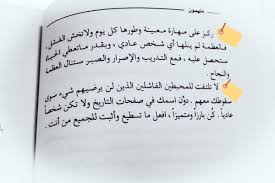 ملهمون
ركز على مهارة معينة وطورها كل يوم ولا تخش الفشل،
فالعظمة لم ينلها أي شخص عادي، وبقدر ما تعطي الحياة
ستحصل عليه، فمع التدريب والإصرار والصبر ستنال العظمة
والنجاح.
لا تلتفت للمحبطين الفاشلين الذين لن يرضيهم شيء سوى
سقوطك معهم. دوّن اسمك في صفحات التاريخ ولا تكن شخصاً
عادياً. كن بارزاً ومتميزاً، افعل ما تستطيع وأثبت للجميع من أنت.